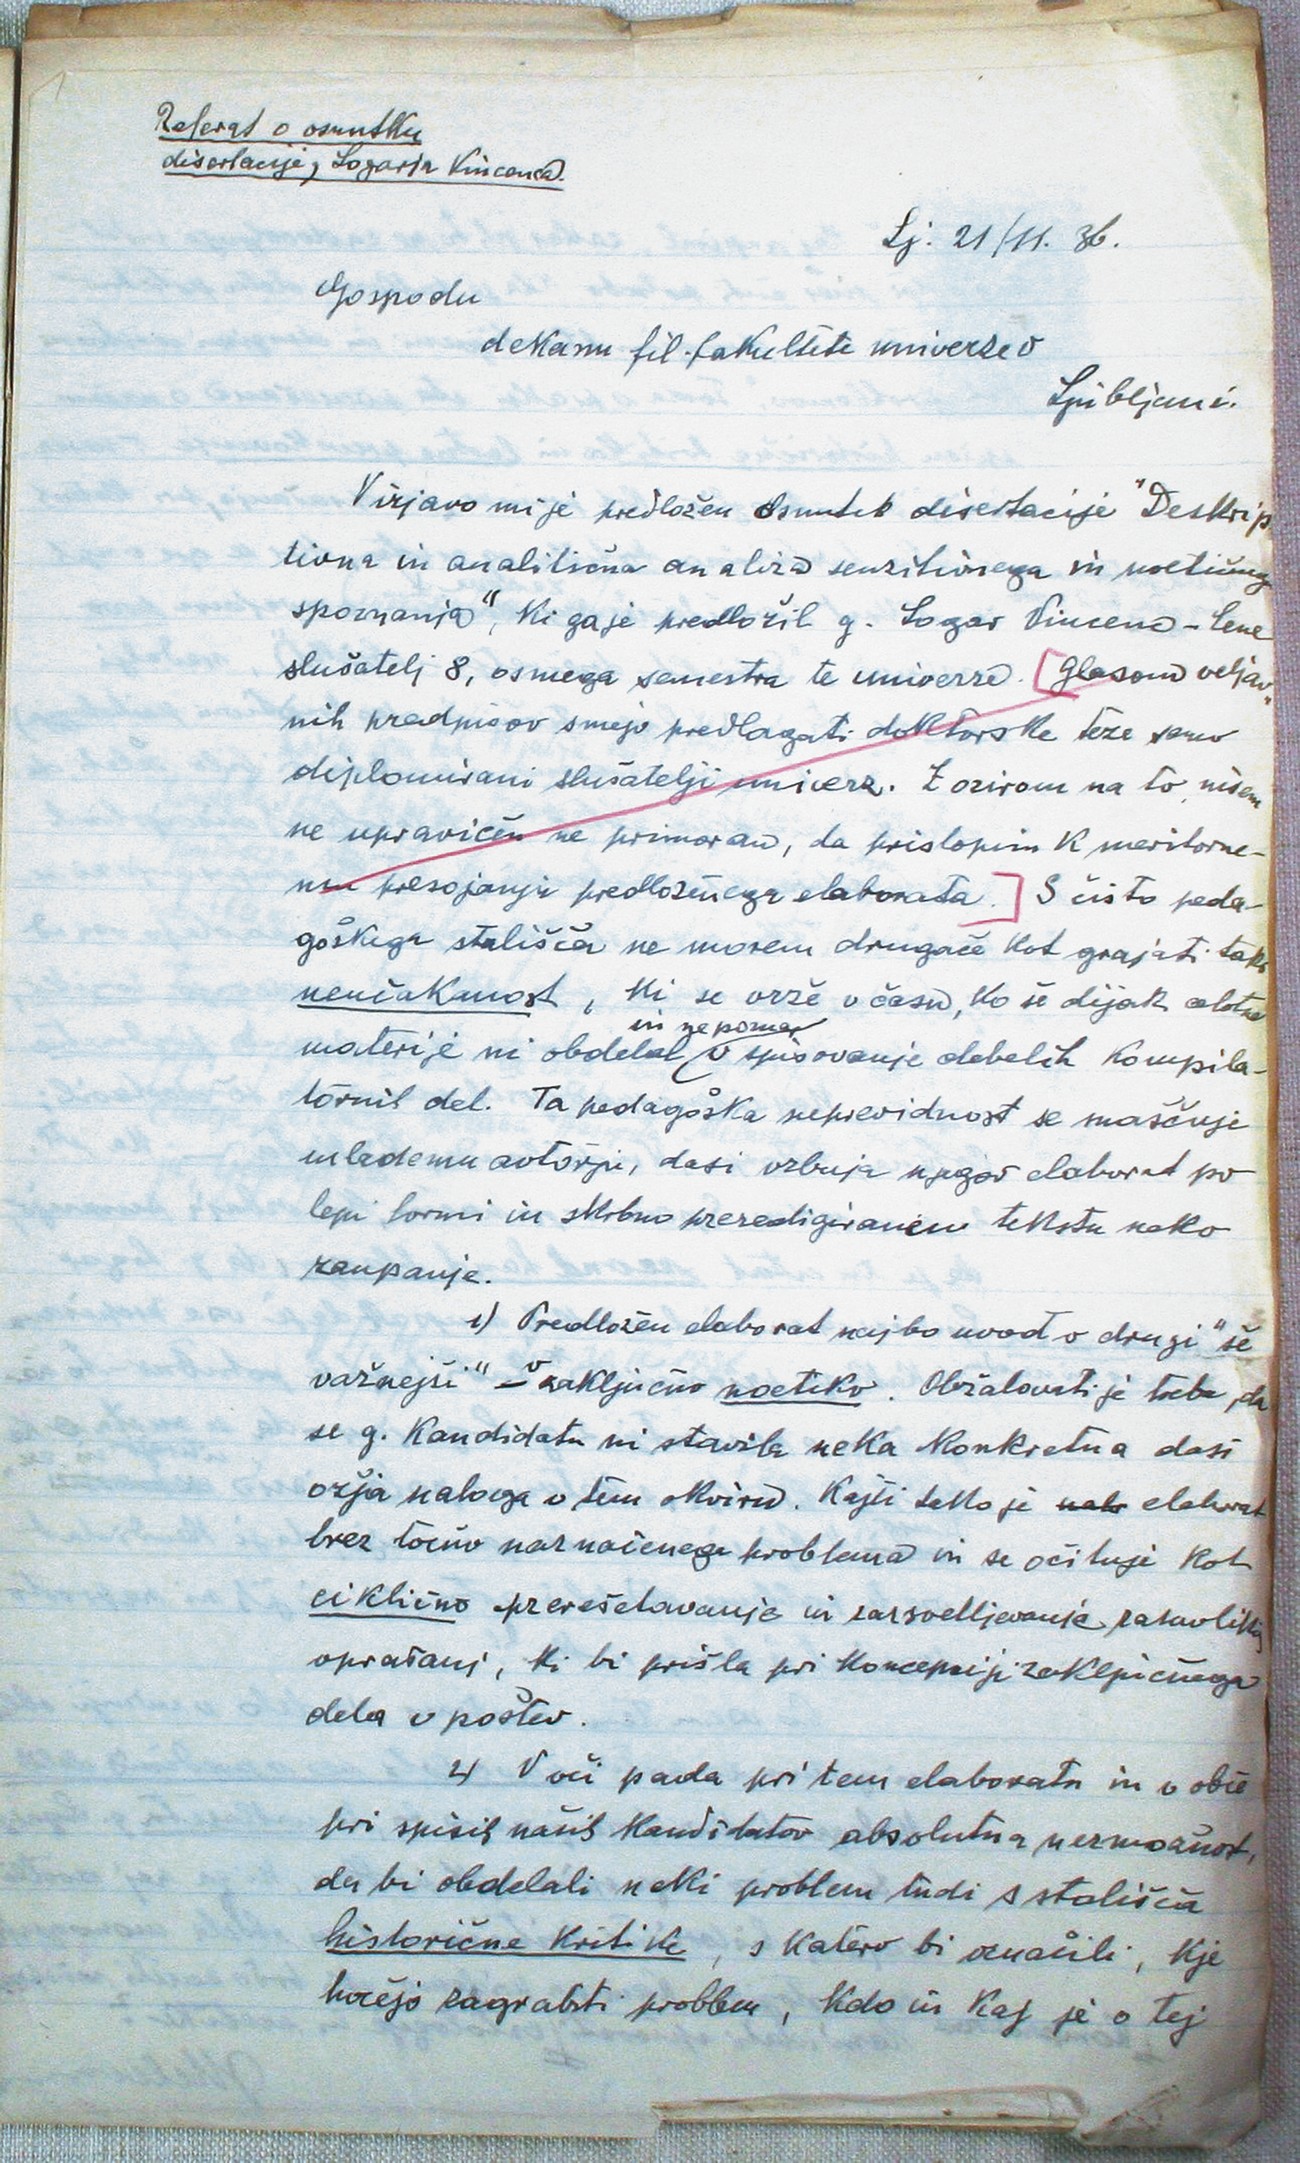 Referat o osnutku
disertacije, Logarja Vincenca.
Lj. 21/11. 36.
Gospodu
dekanu fil. fakultete univerze v
Ljubljani.
V izjavo mi je predložen osnutek disertacije "Deskrip
tivna in analitična analiza senzitivnega in noetičneg
spoznanja", ki ga je predložil g. Logar Vincenc - Cene
slušatelj 8, osmega semestra te univerze. [Glasom veljav-
nih predpisov smejo predlagati doktorske teze samo
diplomirani slušatelji univerz. Z ozirom na to nisem
ne upravičen ne primoran, da pristopim k meritorne-
mu presojanju predloženega elaborata.] S čisto peda-
goškega stališča ne morem drugače kot grajati tako
neučakanost, ki se vrže v času, ko še dijak celotne
in nepomen
materije ni obdelal v spisovanje debelih kompila-
tornih del. Ta pedagoška neprevidnost se maščuje
mlademu avtorju, dasi vzbuja njegov elaborat po
lepi formi in skrbno preredigiranem tekstu neko
zaupanje.
1) Predložen elaborat naj bo uvod v drugi "še
važnejši" – v zaključno noetiko. Obžalovati je treba, da
se g. kandidatu ni stavila neka konkretna dasi
ožja naloga v tem okviru. Kajti tako je elaborat
brez točno naznačenega problema in se očituje kot
ciklično prerešetavanje in razsvetljevanje raznolikih
vprašanj, ki bi prišla pri koncepciji zaključnega
dela v poštev.
2) V oči pada pri tem elaboratu in v obče
pri spisih naših kandidatov absolutna nezmožnost,
da bi obdelali neki problem tudi s stališča
historične kritike, s katero bi označili, kje
hočejo zagrabiti problem, kdo in kaj je o tej